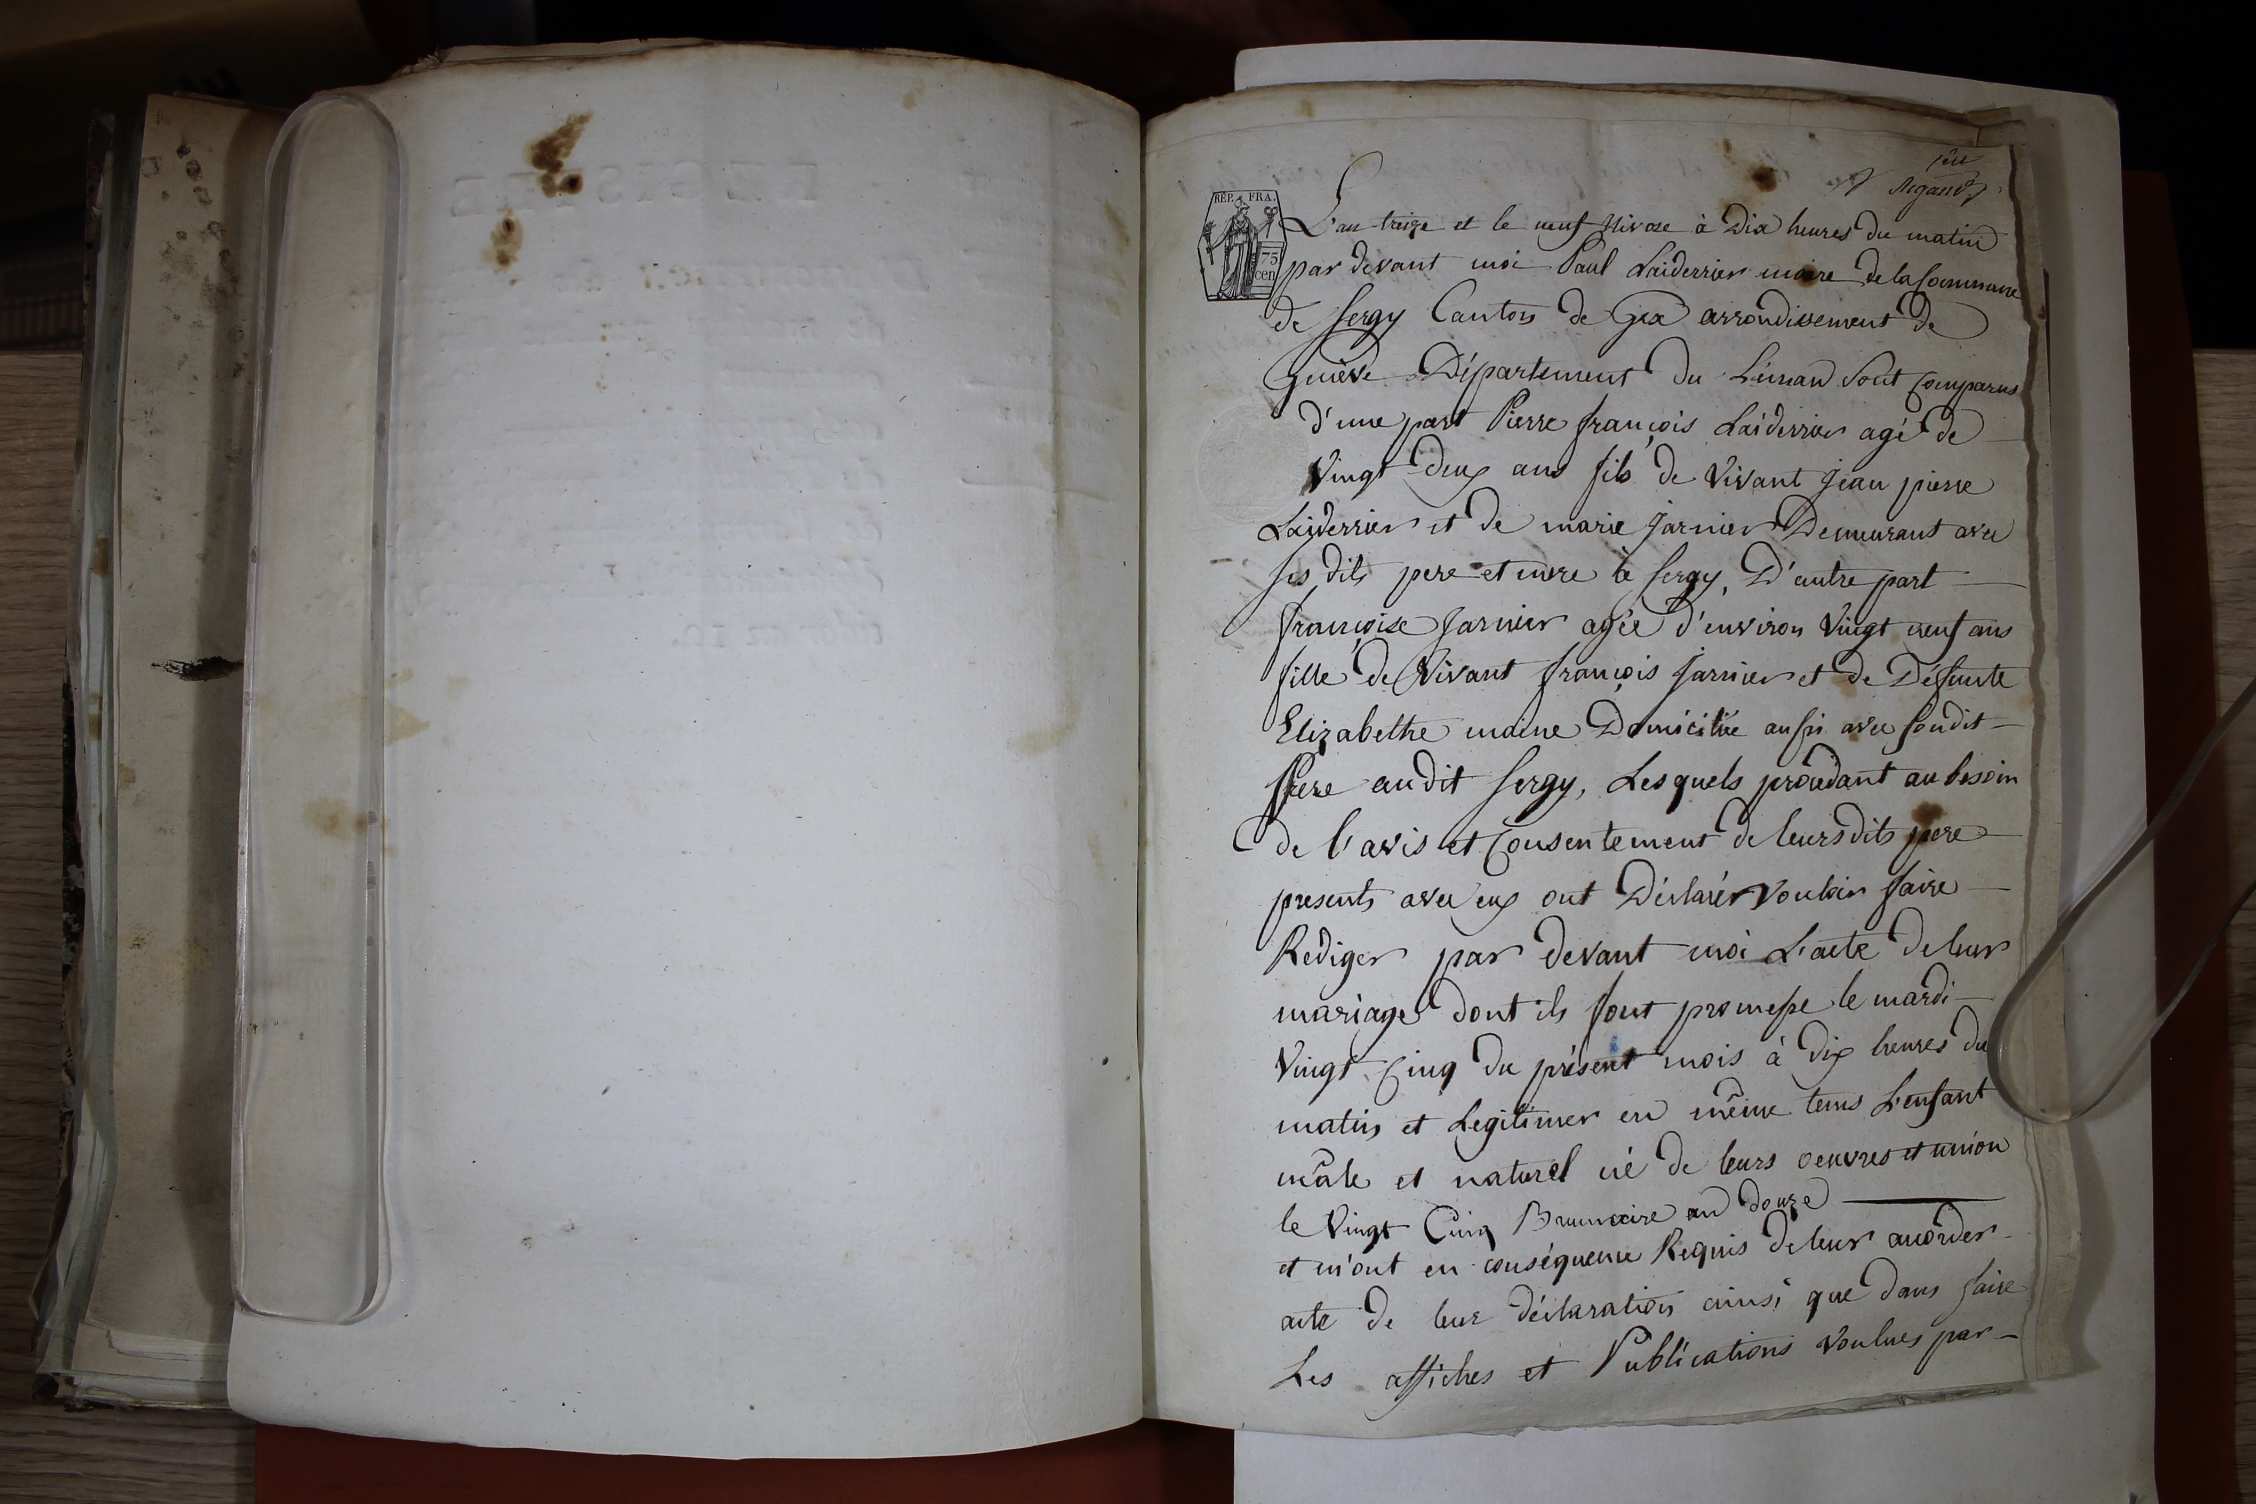 1er
RÉP. FRA.
75
cen
L'an treize et le neuf Nivose à Dix heures du matin
par devant moi Paul Laiderrier maire de la Commune
de Sergy Canton de Gex arrondissement de
Genève Département du Léman Sont Comparus
d'une part Pierre françois Laiderrier agé de
Vingt deux ans fils de Vivant Jean pierre
Laiderrier et de marie Jarnier Demeurant avec
ses dits pere et mere à Sergy, D'autre part
françoise Jarnier agée d'environ Vingt neuf ans
fille de Vivant françois Jarnier et de Défunte
Elizabethe moine Domiciliée aussi avec sondit
Pere audit Sergy, Lesquels procedant au besoin
de l'avis et Consentement de leurs dits pere
presents avec eux ont Déclarér vouloir faire
Rediger par devant moi L'acte de leur
mariage dont ils font promesse le mardi
Vingt Cinq du présent mois à dix heures du
matin et Legitimer en même tems L'enfant
mâle et naturel né de leurs oeuvres et union
le Vingt Cinq Brumaire an douze
et m'ont en conséquence Requis de leur accorder
acte de leur déclaration ainsi que d'en faire
Les affiches et Publications Voulues par